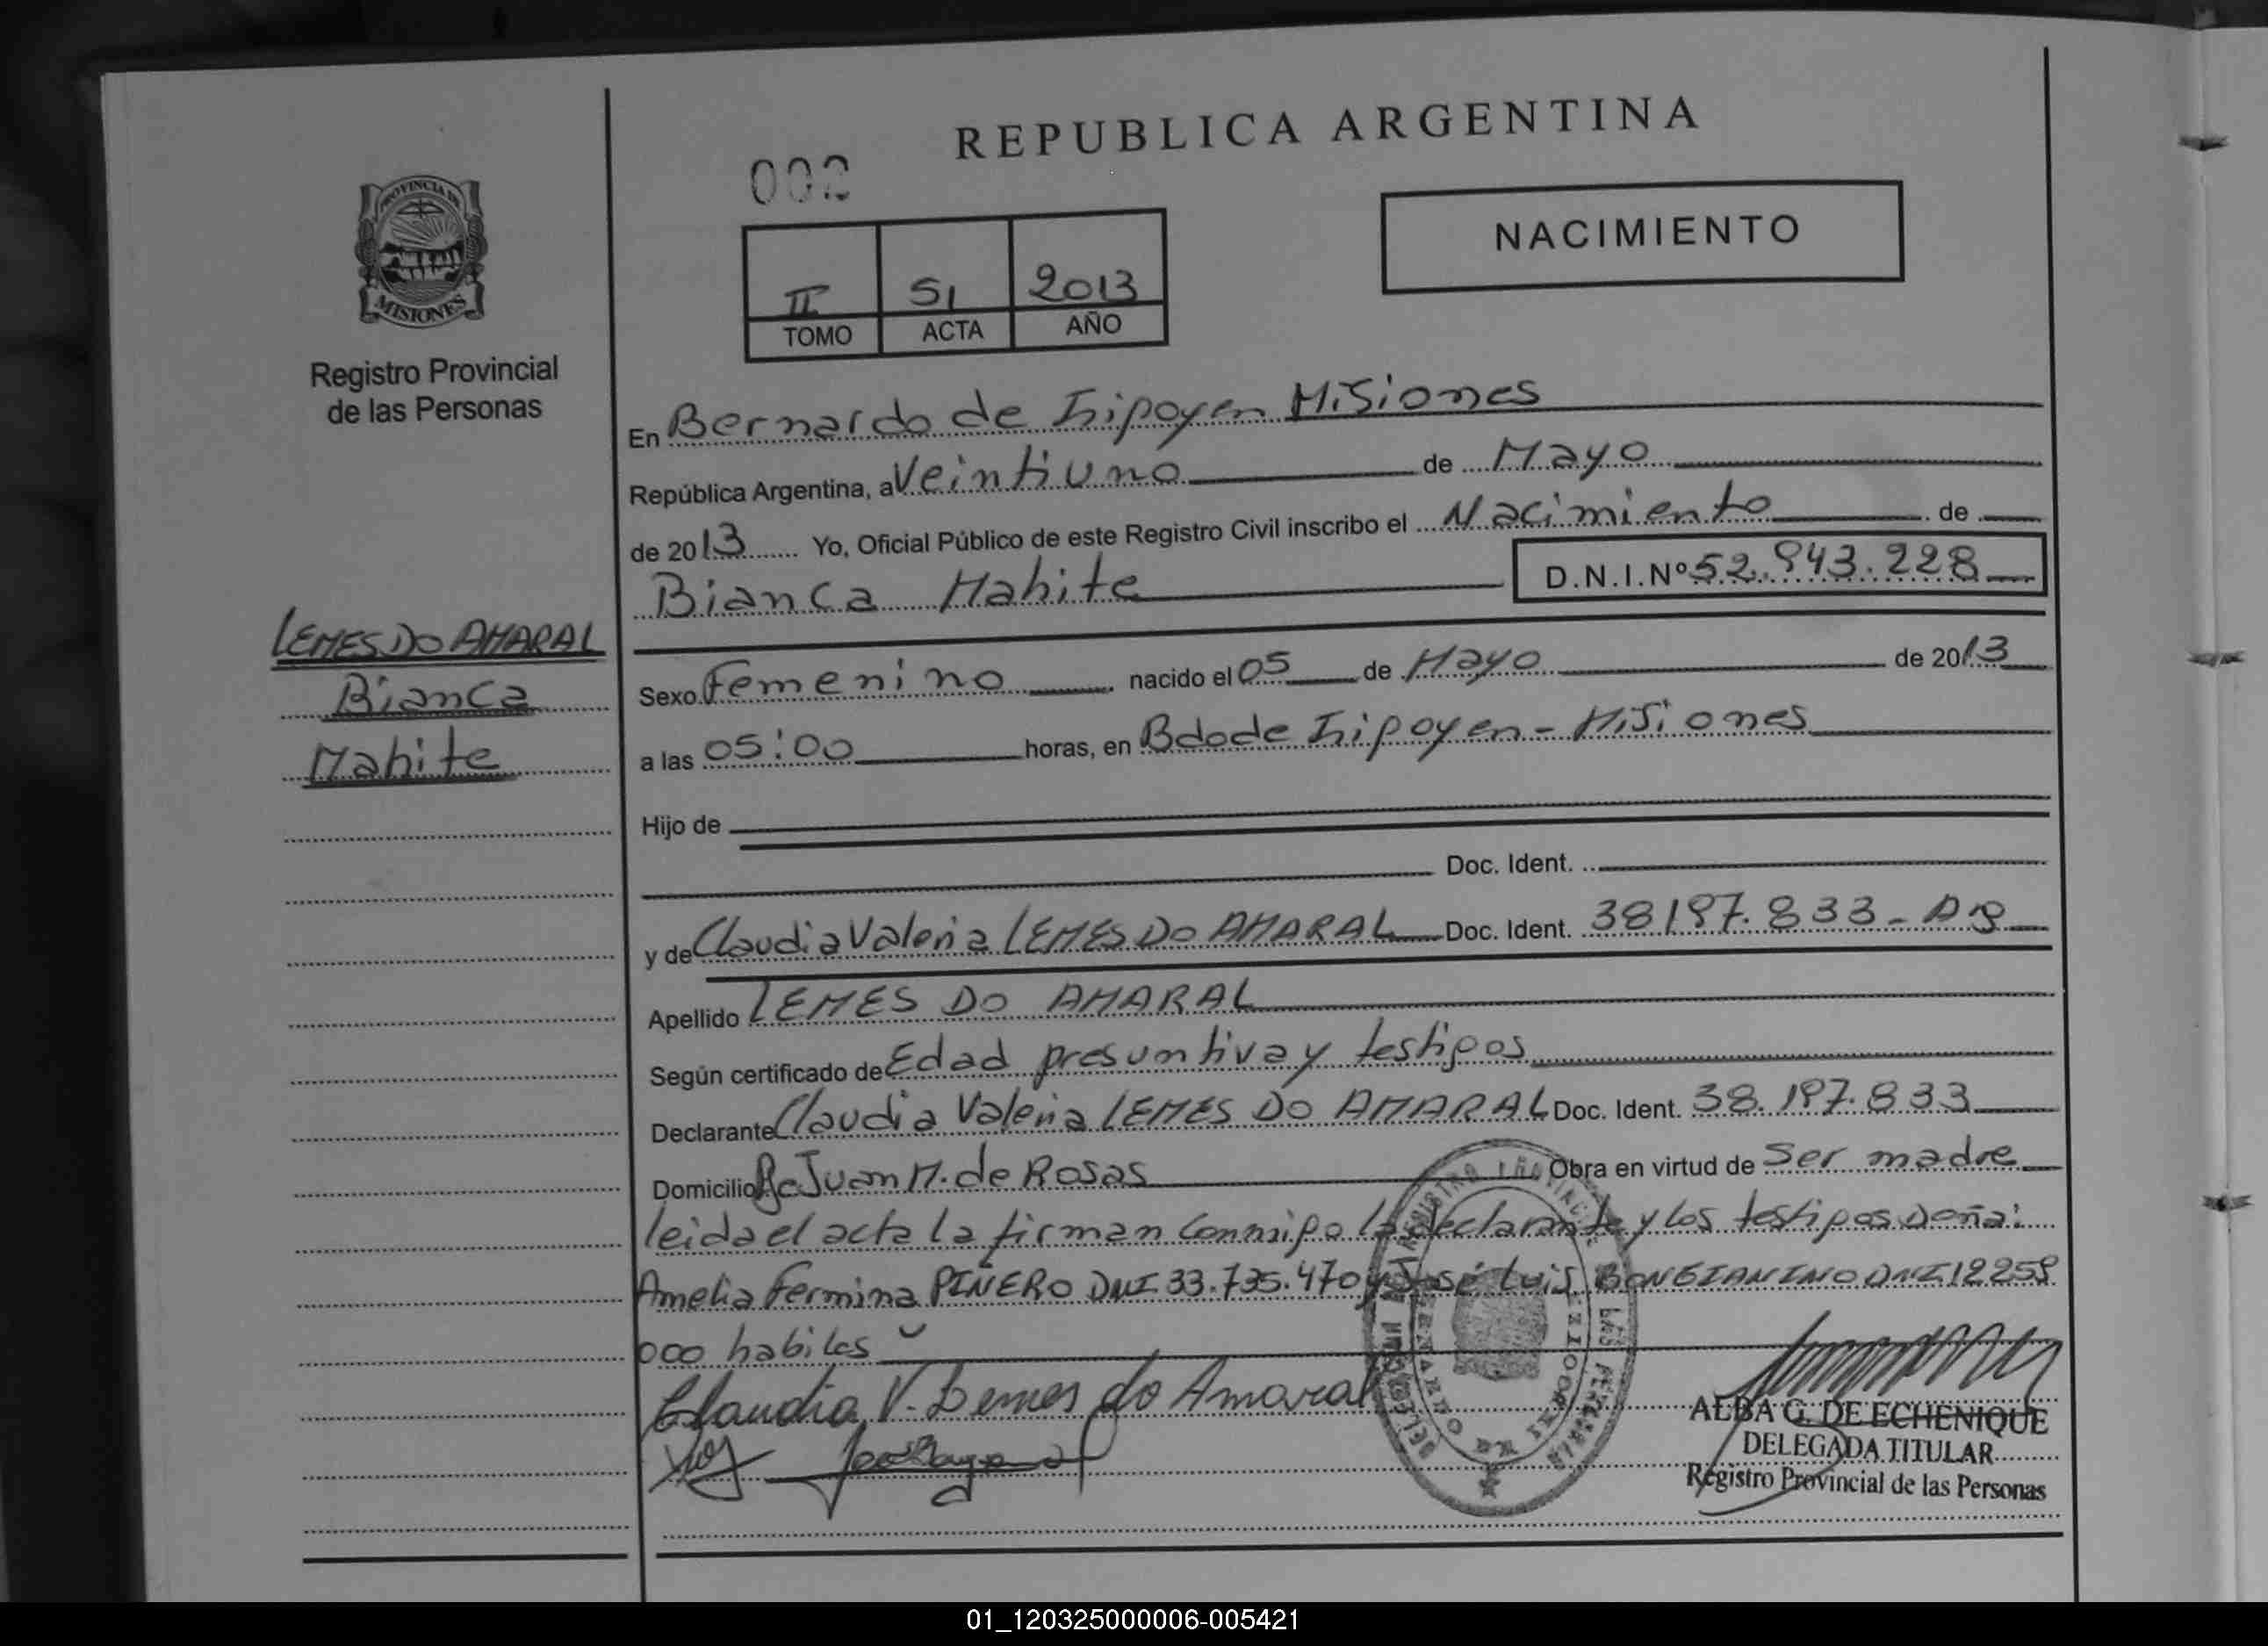 REPUBLICA ARGENTINA
002
NACIMIENTO
II 51 2013
TOMO ACTA AÑO
PROVINCIA DE
MISIONES
Registro Provincial
de las Personas
LEMES DO AMARAL
Bianca
Mahite
En Bernardo de Irigoyen Misiones
República Argentina, a Veintiuno de Mayo
de 2013 Yo, Oficial Público de este Registro Civil inscribo el Nacimiento de
Bianca Mahite D.N.I.Nº 52.943.228
Sexo Femenino nacido el 05 de Mayo de 2013
a las 05:00 horas, en Bdo de Irigoyen - Misiones
Hijo de
Doc. Ident.
y de Claudia Valeria LEMES DO AMARAL Doc. Ident. 38197.833 - Arg
Apellido LEMES DO AMARAL
Según certificado de Edad presuntiva y testigos
Declarante Claudia Valeria LEMES DO AMARAL Doc. Ident. 38.197.833
Domicilio Bº Juan M. de Rosas Obra en virtud de Ser madre
leida el acta la firman conmigo la declarante y los testigos Doña:
Amelia Fermina PIÑERO DNI 33.735.470 y José Luis BONGIANINO DNI 12259
000 habiles
Claudia V. Lemes do Amaral
ALBA G. DE ECHENIQUE
DELEGADA TITULAR
Registro Provincial de las Personas
01_120325000006-005421